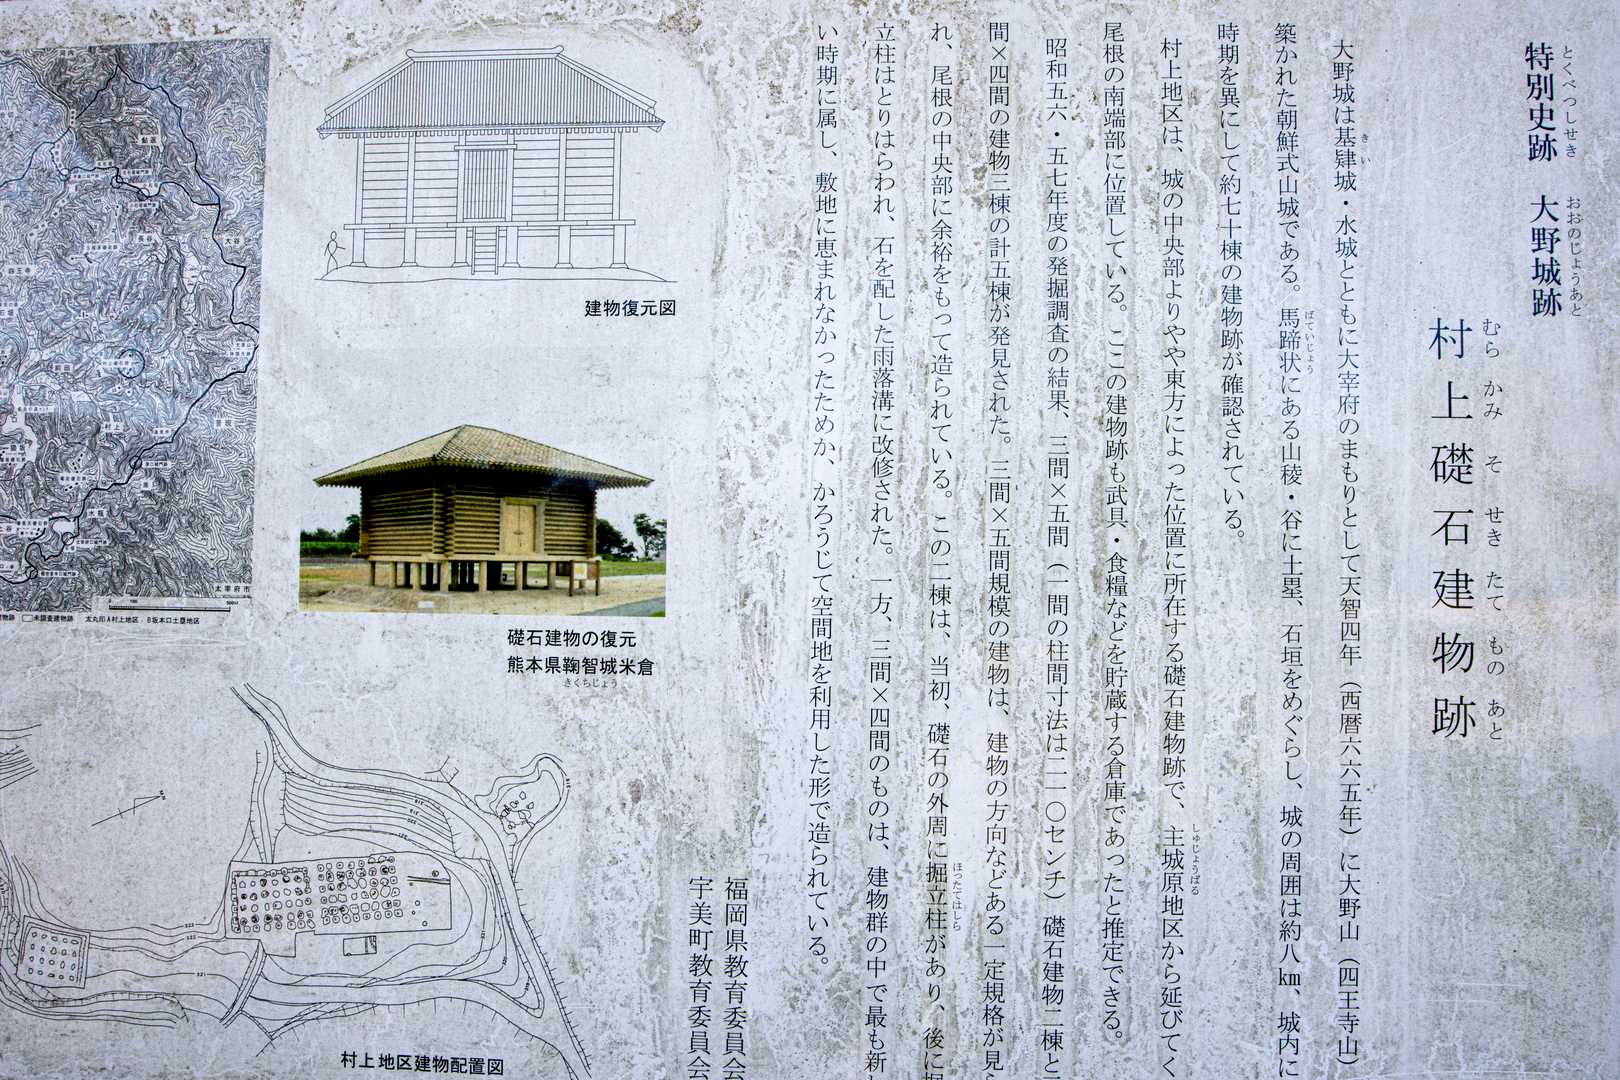 特別史跡　大野城跡
とくべつしせき　おおのじょうあと
村上礎石建物跡
むらかみそせきたてものあと
大野城は基肄城・水城とともに大宰府のまもりとして天智四年（西暦六六五年）に大野山（四王寺山）
きい
築かれた朝鮮式山城である。馬蹄状にある山稜・谷に土塁、石垣をめぐらし、城の周囲は約八㎞、城内に
ばていじょう
時期を異にして約七十棟の建物跡が確認されている。
村上地区は、城の中央部よりやや東方によった位置に所在する礎石建物跡で、主城原地区から延びてく
しゅじょうばる
尾根の南端部に位置している。ここの建物跡も武具・食糧などを貯蔵する倉庫であったと推定できる。
昭和五六・五七年度の発掘調査の結果、三間×五間（一間の柱間寸法は二一〇センチ）礎石建物二棟と
間×四間の建物三棟の計五棟が発見された。三間×五間規模の建物は、建物の方向などある一定規格が見
れ、尾根の中央部に余裕をもって造られている。この二棟は、当初、礎石の外周に掘立柱があり、後に掘
ほったてはしら
立柱はとりはらわれ、石を配した雨落溝に改修された。一方、三間×四間のものは、建物群の中で最も新
い時期に属し、敷地に恵まれなかったためか、かろうじて空間地を利用した形で造られている。
福岡県教育委員会
宇美町教育委員会
建物復元図
礎石建物の復元
熊本県鞠智城米倉
きくちじょう
太宰府市
未調査建物跡　太丸印A村上地区・B坂本口土塁地区
村上地区建物配置図